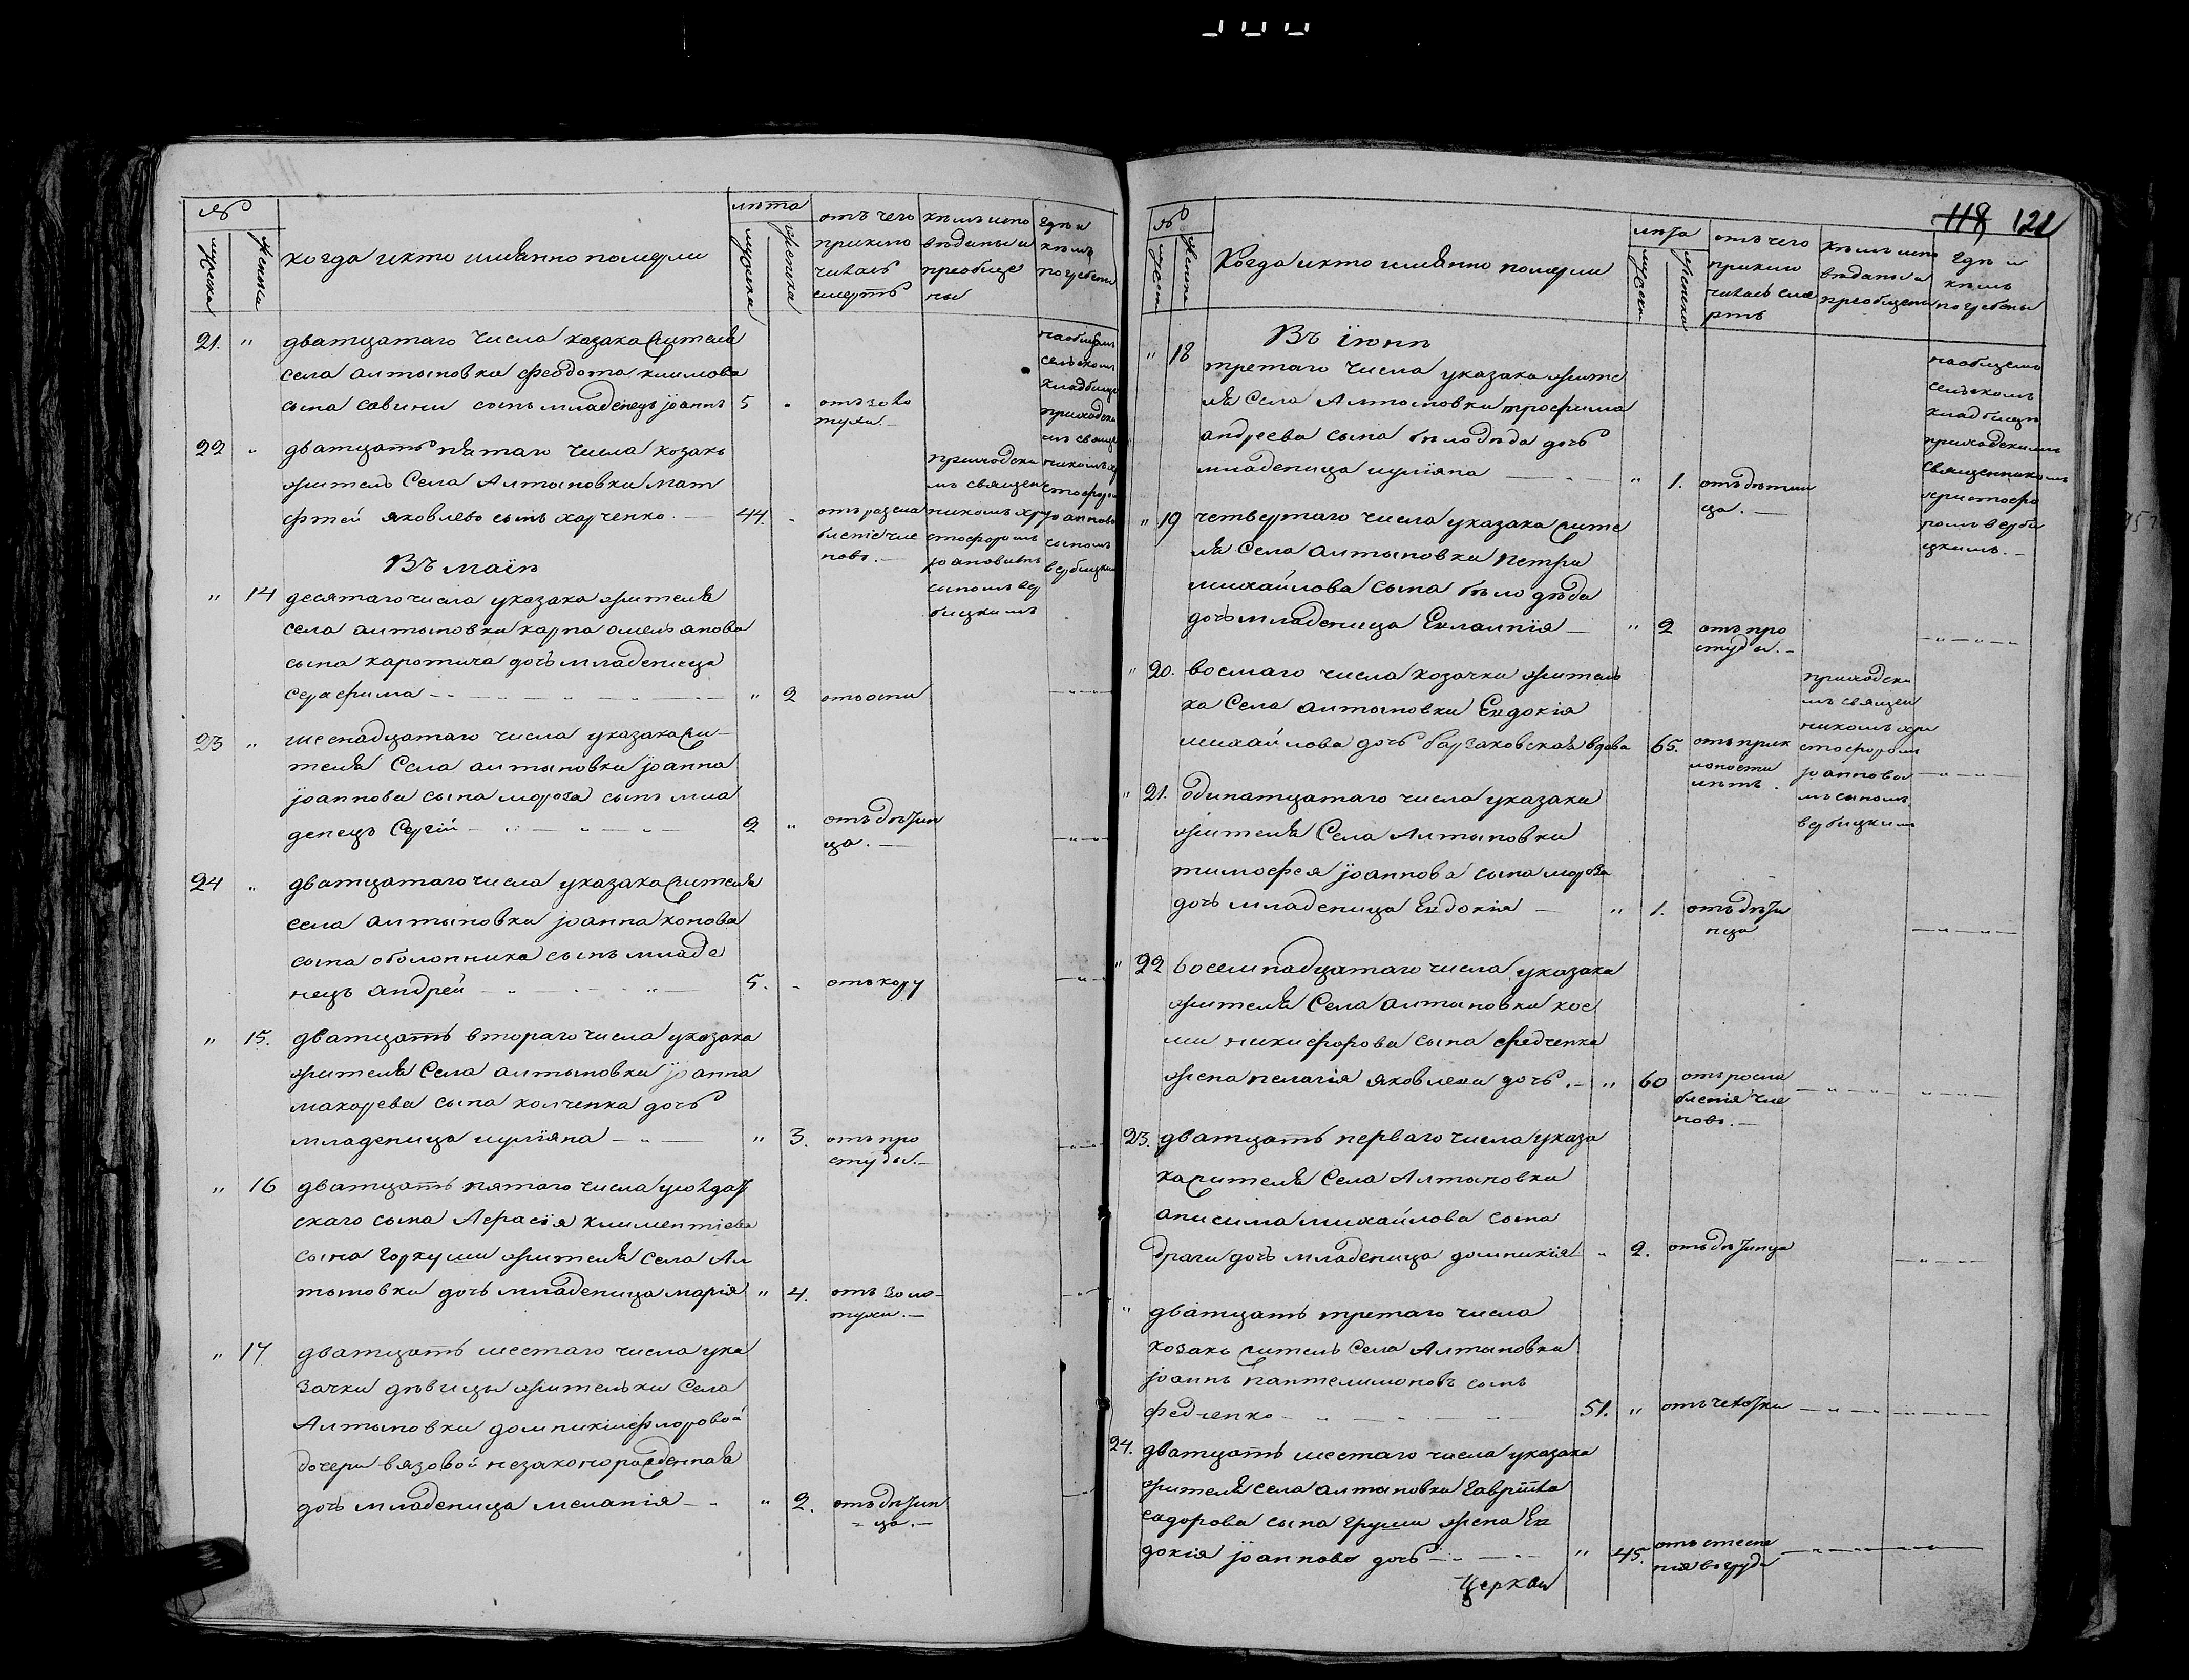 №
мужска
женска
когда и кто имянно померли
лѣта
мужска
женска
отъ чего
приклю
чилась
смерть
кѣмъ испо
вѣданы и
преобще
ны
гдѣ и
кѣмъ
погребены
21. "
дватцатаго числа казака жителя
села алтыновки феодота климова
сына савини сынъ младенецъ іоаннъ 5 "
отъ золо
тухи. —
на общемъ
сельскомъ
кладбище
приходски
мъ свяще
никомъ хри
стофором
іоаннов
сыномъ
вербицким
22 "
дватцать пятаго числа козакъ
житель Села Алтыновки Мат
фтей яковлевъ сынъ харченко. — 44. "
отъ разсла
бленіе чле
новъ. —
приходски
мъ священ
никомъ хри
стофоромъ
іоановымъ
сыномъ вер
бицкимъ
Въ маіи
" 14 десятаго числа у казака жителя
села алтыновки карпа омельянова
сына каротича дочь младеница
серафима — " — " — " 2 отъ оспи
23 " шеснадцатаго числа у казака жи-
теля Села алтыновки іоанна
іоаннова сына мороза сынъ мла
денецъ Сергій — " — " — 2 "
отъ дѣтин
ца. —
24 " дватцатаго числа у казака жителя
села алтыновки іоанна конова
сына оболонника сынъ младе
нецъ андрей — " — " — 5. " отъ кору
" 15. дватцать втораго числа у козака
жителя Села алтыновки іоанна
макарева сына колченка дочь
младеница иуліяна — " — " 3. отъ про
студы. —
" 16 дватцать пятаго числа
скаго сына Герасія климентіева
сына Горкуши жителя села Ал
тыновки дочь младеница марія " 4. отъ золо-
тухи. —
" 17 дватцать шестаго числа у ка
зачки дѣвицы жительки Села
Алтыновки домникіи флоровой
дочери вязовой незаконорожденная
дочь младеница меланія — " 2. отъ дѣтин
ца. —
118 121
№
мужеск
женска
Когда и кто имянно померли
лѣта
мужска
женска
отъ чего
приклю
чилась сме
рть
кѣмъ испо
вѣданы и
преобщены
гдѣ и
кѣмъ
погребены
Въ іюни
" 18 третаго числа у казака жите
ля Села Алтыновки трофима
андреева сына бѣлодѣда дочь
младеница иуліяна — " — " 1. отъ дѣтин
ца. —
на общемъ
сельскомъ
кладбищѣ
приходскимъ
священникомъ
христофо
ромъ верби
цкимъ. —
" 19 четвертаго числа у казака жите
ля Села алтыновки петра
михайлова сына бѣлодѣда
дочь младеница Евлампія — " 2 отъ про
студы. —
" 20. восмаго числа козачка житель
ка Села алтыновки Евдокія
михайлова дочь баргаковская вдова 65. отъ прек
лоности
лѣтъ.
приходски
мъ священ
никомъ хри
стофоромъ
іоановы
мъ сыномъ
вербицким
" 21. одинатцатаго числа у казака
жителя Села Алтыновки
тимофея іоаннова сына мороза
дочь младеница Евдокія — " 1. отъ дѣти
нца
" 22 восемнадцатаго числа у казака
жителя Села алтыновки кос
ми никифорова сына федченка
жена пелагія яковлева дочь. — " 60 отъ росла
бленія чле
новъ. —
23. дватцать перваго числа у каза
ка жителя Села Алтыновки
анисима михайлова сына
драги дочь младеница домникія " 2. отъ дѣтинца
" дватцать третаго числа
козакъ житель Села Алтыновки
іоаннъ пантелимоновъ сынъ
федченко — " — " — 51. " отъ чехотки
24. дватцать шестаго числа у казака
жителя села алтыновки Гавріила
сидорова сына груши жена Ев
докія іоаннова дочь — " — " 45. отъ стесне
нія в груди
Церкви